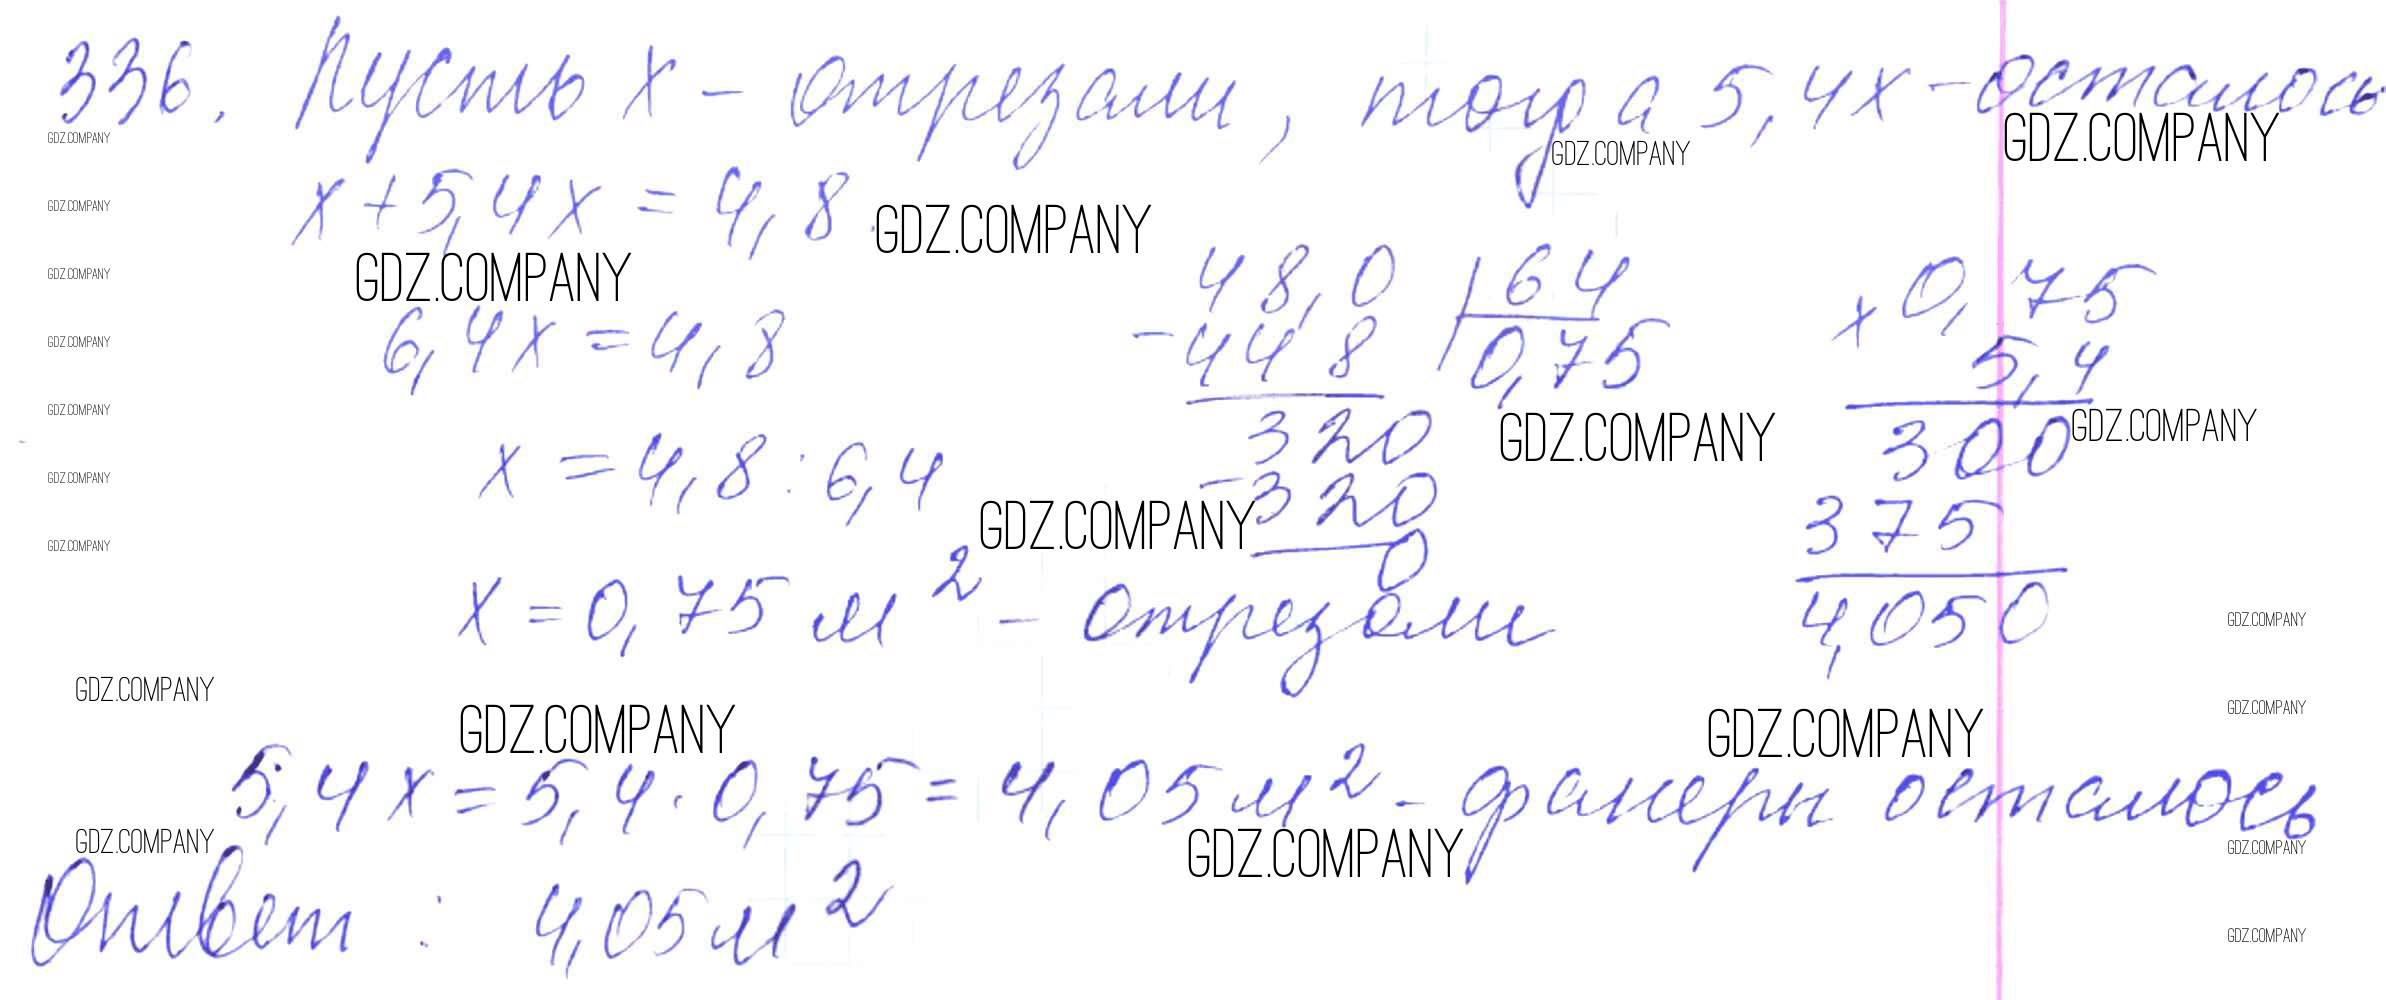 336. Пусть x – отрезали, тогда 5,4x – осталось
GDZ.COMPANY GDZ.COMPANY GDZ.COMPANY
x + 5,4x = 4,8
GDZ.COMPANY GDZ.COMPANY
GDZ.COMPANY GDZ.COMPANY
6,4x = 4,8
GDZ.COMPANY
x = 4,8 : 6,4
GDZ.COMPANY GDZ.COMPANY GDZ.COMPANY
48,0 | 64
- 448 | 0,75
320
- 320
0
x 0,75
5,4
300
375
4,050
GDZ.COMPANY GDZ.COMPANY
GDZ.COMPANY
x = 0,75 м² – отрезали
GDZ.COMPANY
GDZ.COMPANY GDZ.COMPANY GDZ.COMPANY GDZ.COMPANY
5,4x = 5,4 · 0,75 = 4,05 м² – фанеры осталось
GDZ.COMPANY GDZ.COMPANY GDZ.COMPANY
Ответ : 4,05 м²
GDZ.COMPANY